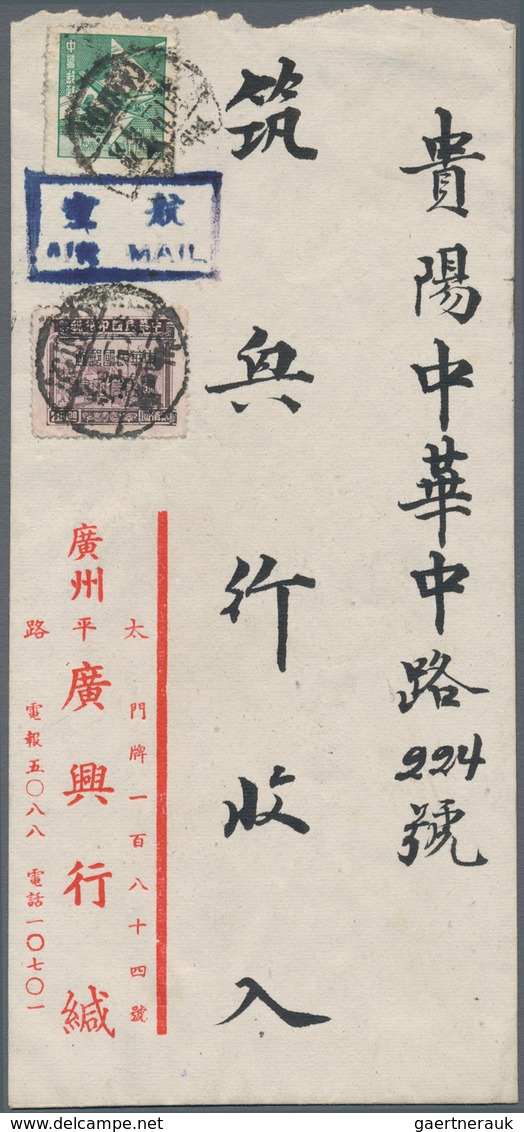 貴陽中華中路224號
筑兴行收入
航空
AIR MAIL
廣州太平路
門牌一百八十四號
廣興行緘
電報五〇八八 電話一〇七〇一
gaertnerauk